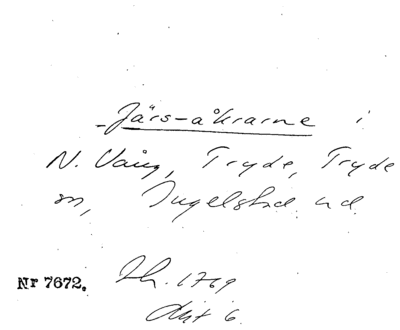 -Järs-åkrarne i
N. Vång, Tryde, Tryde
sn, Ingelstad hd
Nr 7672. Sk. 1769
Akt 6